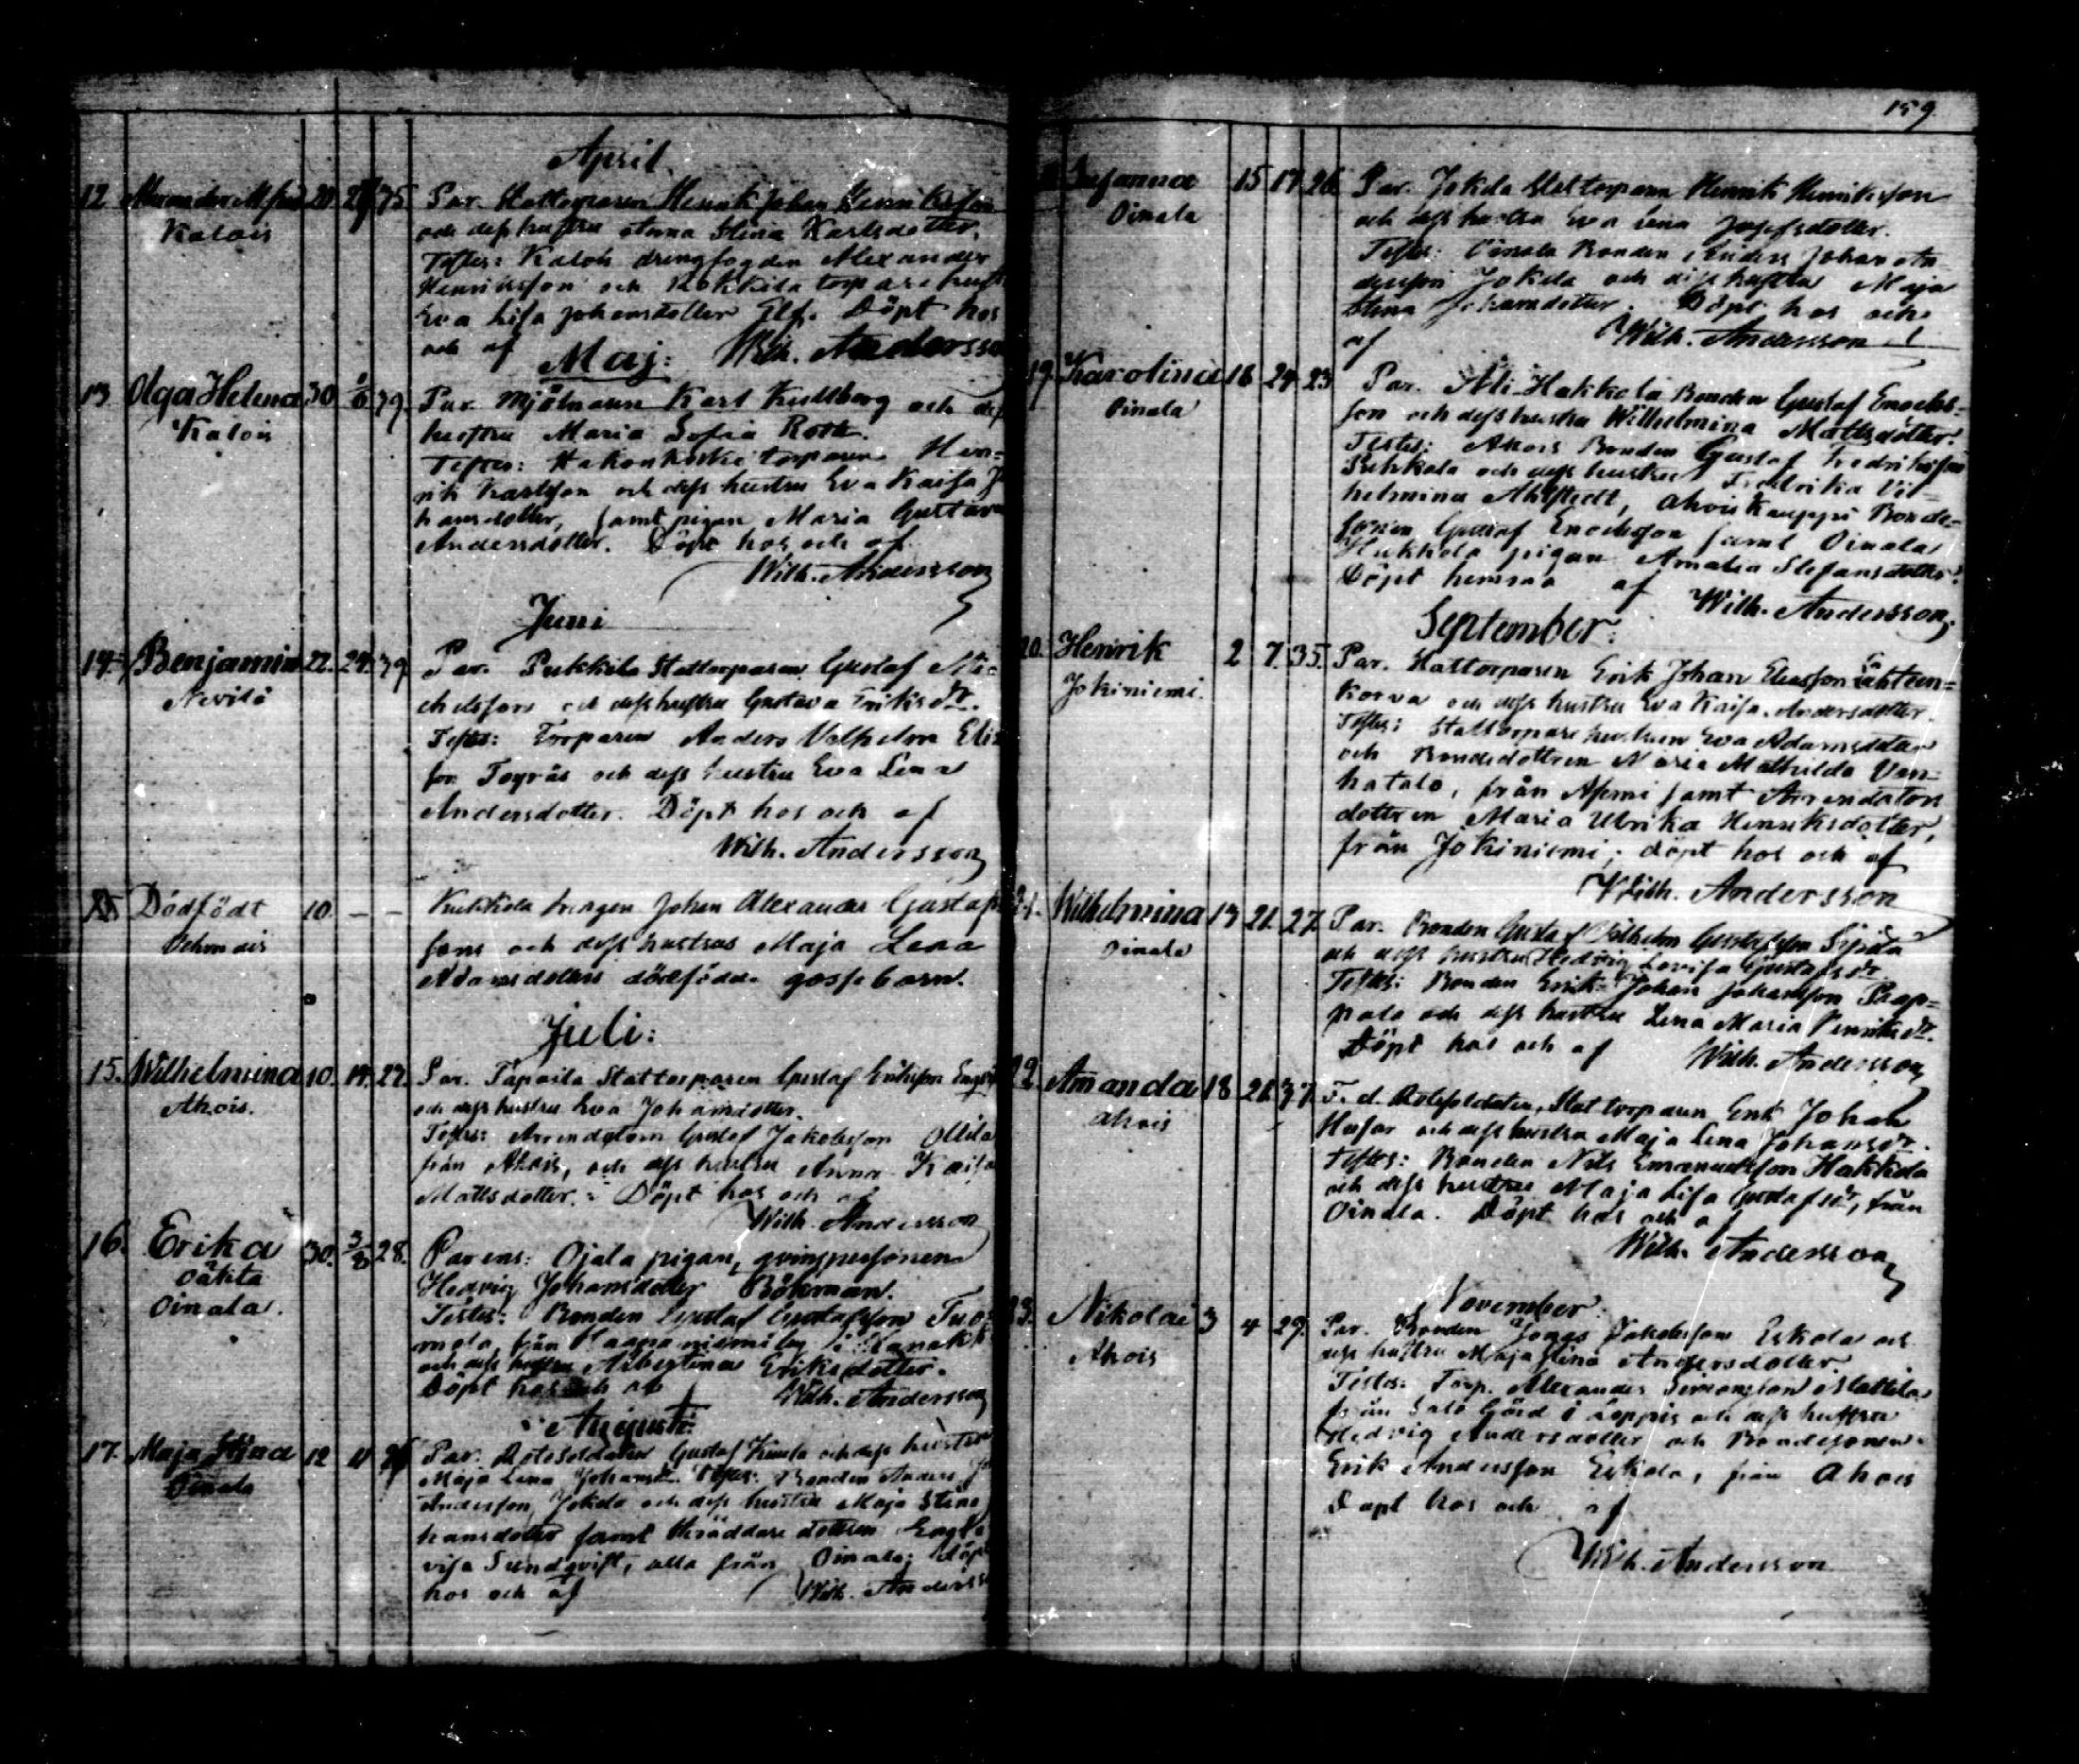 April.
12 Alexander Alfred 20 27 35 Par. Stattorparen Henrik Johan Henriksson
Kalois och dess hustru Anna Stina Karlsdotter.
Testes: Kalois drengfogden Alexander
Henriksson och Kokkila torpare hustr
Eva Lisa Johansdotter Elf. Döpt hos
och af Wilh. Andersson
Maj:
13 Olga Helena 30 1/6 39 Par. Mjölnaren Karl Kullberg och dess
Kalois hustru Maria Sofia Roth.
Testes: torparen Hen-
rik Karlsson och dess hustru Eva Kaisa Jo
hansdotter, samt pigan Maria Gustava
Andersdotter. Döpt hos och af
Wilh. Andersson
Juni
14. Benjamin 22. 24. 39 Par. Pukkila Stattorparen Gustaf Mi-
Nevilä chelsson och dess hustru Gustava Eriksdr.
Testes: Torparen Anders Vilhelm Elis
son Toyräs och dess hustru Eva Lena
Andersdotter. Döpt hos och af
Wilh. Andersson
Dödfödt 10. — — Kukkola drengen Johan Alexander Gustafs
sons och dess hustrus Maja Lena
Adamsdotters dödfödda gossebarn.
Juli:
15. Wilhelmina 10. 14. 22. Par. Tapaila Stattorparen Gustaf Eriksson
Ahois. och dess hustru Eva Johansdotter.
Testes: Arrendatorn Gustaf Jakobsson Ollila
från Ahois, och dess hustru Anna Kaisa
Mattsdotter. Döpt hos och af
Wilh. Andersson
16. Erika 30. 3/8 28. Parens: Ojala pigan, qvinspersonen
oäkta Hedvig Johansdotter Bökman.
Oinala. Testes: Bonden Gustaf Gustafsson Tuo
mola, från by i
och dess hustru Albertina Eriksdotter.
Döpt hos och af Wilh. Andersson
Augusti:
17. Maja Stina 12 11 Par. Rotesoldaten Gustaf och dess hustru
Oinala Maja Lena Johansdr. Testes: Bonden Anders Jo
Andersson, Jokela och dess hustru Maja Stina
hansdotter samt Skräddare dottren
visa Sundqvist, alla från Oinala; döpt
hos och af Wilh. Andersson
159.
Susanna 15 17. 26. Par. Jokela Stattorparen Henrik Henriksson
Oinala och dess hustru Eva Lena Josefsdotter.
Testes: Oinala Bonden Anders Johan An
dersson Jokela och dess hustru Maja
Stina Johansdotter. Döpt hos och
af Wilh. Andersson
19. Karolina 16 24. 23 Par. Ali-Hakkola Bonden Gustaf Enocks-
Oinala son och dess hustru Wilhelmina Mattsdotter.
Testes: Ahois Bonden Gustaf Fredriksson
Puhkala och dess hustru Fredrika Vil-
helmina Ahlstedt, Ahois Kauppi Bonde-
sonen Gustaf Enocksson samt Oinala
Hakkola pigan Amalia Stefansdotter.
Döpt hemma af Wilh. Andersson.
September:
20. Henrik 2 7. 35. Par. Stattorparen Erik Johan Eliasson Lähteen-
Jokiniemi. korva och dess hustru Eva Kaisa Andersdotter.
Testes: Stattorpare hustrun Eva Adamsdotter
och Bondedottren Maria Mathilda Van-
hatalo, från samt Arrendators
dottren Maria Ulrika Henriksdotter,
från Jokiniemi; döpt hos och af
Wilh. Andersson
21. Wilhelmina 13 21. 27. Par. Bonden Gustaf Wilhelm Gustafsson
Oinala och dess hustru Hedvig Lovisa Gustafsdr.
Testes: Bonden Erik Johan Johansson Pap-
pala och dess hustru Lena Maria Henriksdr.
Döpt hos och af Wilh. Andersson
22. Amanda 18 21. 37. F. d. Rotesoldaten, Stattorparen Erik Johan
Ahois Husar och dess hustru Maja Lena Johansdr.
Testes: Bonden Nils Emanuelsson Hakkola
och dess hustru Maja Lisa Gustafsdr, från
Oinala. Döpt hos och af
Wilh. Andersson
November:
23. Nikolai 3 4 29. Par. Bonden Jonas Jakobsson Eskola och
Ahois dess hustru Maja Stina Andersdotter
Testes: Torp. Alexander Simonsson Mattila
från Salo Gård i Loppis och dess hustru
Hedvig Andersdotter och Bondesonen
Erik Andersson Eskola, från Ahois
Döpt hos och af
Wilh. Andersson